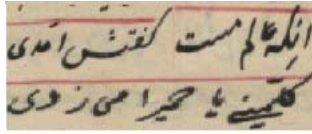 آنکه عالم مست کفتش آمدی
کلمینی یا حمیرا می زدی